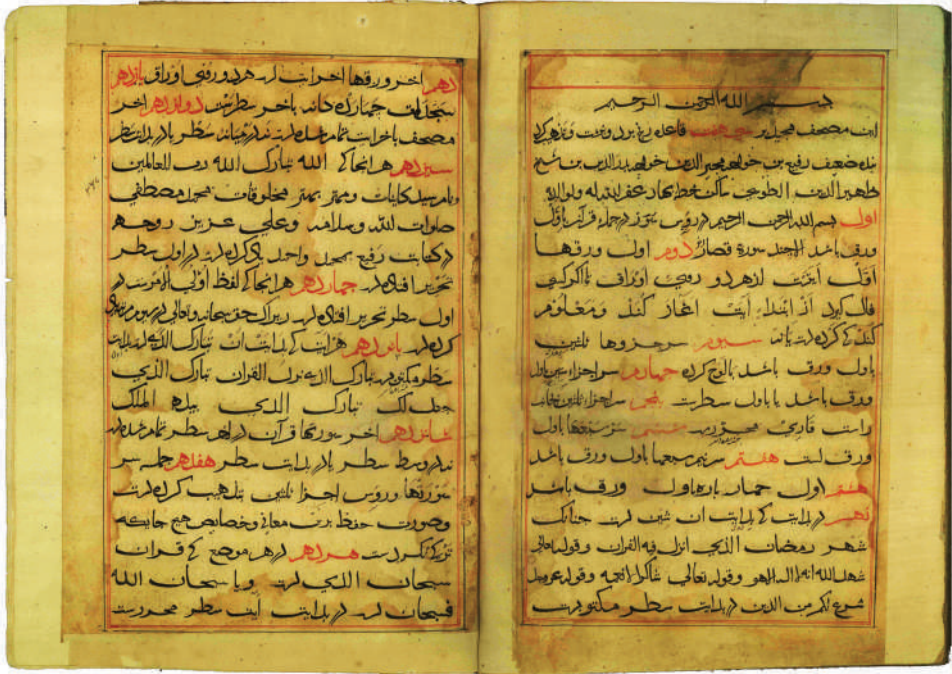 بسم الله الرحمن الرحيم
این مصحف مجید بر هفت قاعده
بنده ضعیف رفیع بن خواجه مجیر الدین خواجه بدر الدین بن شیخ
ظهیر الدین الطوعی ساکن خطه بهار عفر الله له ولوالدیه
اول بسم الله الرحمن الرحیم در روس سور در جمله قرآن باول
ورق باشد الا چند سورة قصار دوم اول ورقها
اول آیتست از هر دو روی اوراق تا اگر کسی
فال گیرد از ابتداء آیت آغاز کند و معلوم
کند که کرده است یا نه سیوم سر جزوها ثلثین
باول ورق باشد بالوح کرده چهارم سر اجزاء باول
ورق باشد یا باول سطرست پنجم سر اجزاء
راست قاری ششم باول
ورق است هفتم سر سبعها باول ورق باشد
هشتم اول چهار پاره باول ورق باشد
نهم در بدایت که بدایت آن شین است چنانک
شهر رمضان الذي انزل فيه القران وقوله تعالى
شهد الله انه لا اله الا هو وقوله تعالى شاكرا لانعمه وقوله عز وجل
شرع لكم من الدين در بدایت سطر مکتوبست
دهم آخر ورقها آخر آیات است هر دو روی اوراق یازدهم
سجدات چهارده گانه بآخر سطرست دوازدهم آخر
مصحف بآخر آیات تمام شده است نه در میانه سطر یا در بدایت سطر
سیزدهم هر آنجا که الله تبارك الله رب للعالمين
ونام سید کاینات ومهتر بهتر مخلوقات محمد مصطفی
صلوات لله وسلامه وعلی عزیز روحه
در کتابت رفیع محمد واحمد یاد کرده است در اول سطر
تحریر افتاده است چهاردهم هر آنجا که لفظ اولی الامرست در
اول سطر تحریر افتاده است زیراک حق سبحانه وتعالی در سیوم مرتبه یاد
کرده است پانزدهم هر آیت که بدایت آن تبارك الذي است بدایت
سطر مکتوبست تبارك الذي نزل الفرقان تبارك الذي
جعل لك تبارك الذي بيده الملك
شانزدهم آخر سورتها قرآن در آخر سطر تمام شده است
نه در وسط سطر یا در بدایت سطر هفدهم جمله سر
سورتها وروس اجزا ثلثین بتذهیب کرده است
وصورت حفظ برین معانی وخصایص هیچ جایگه
ترک نکردست هژدهم در هر موضع که قرآن
سبحان الذي است ویا سبحان الله
فسبحان است در بدایت آیت سطر محررست